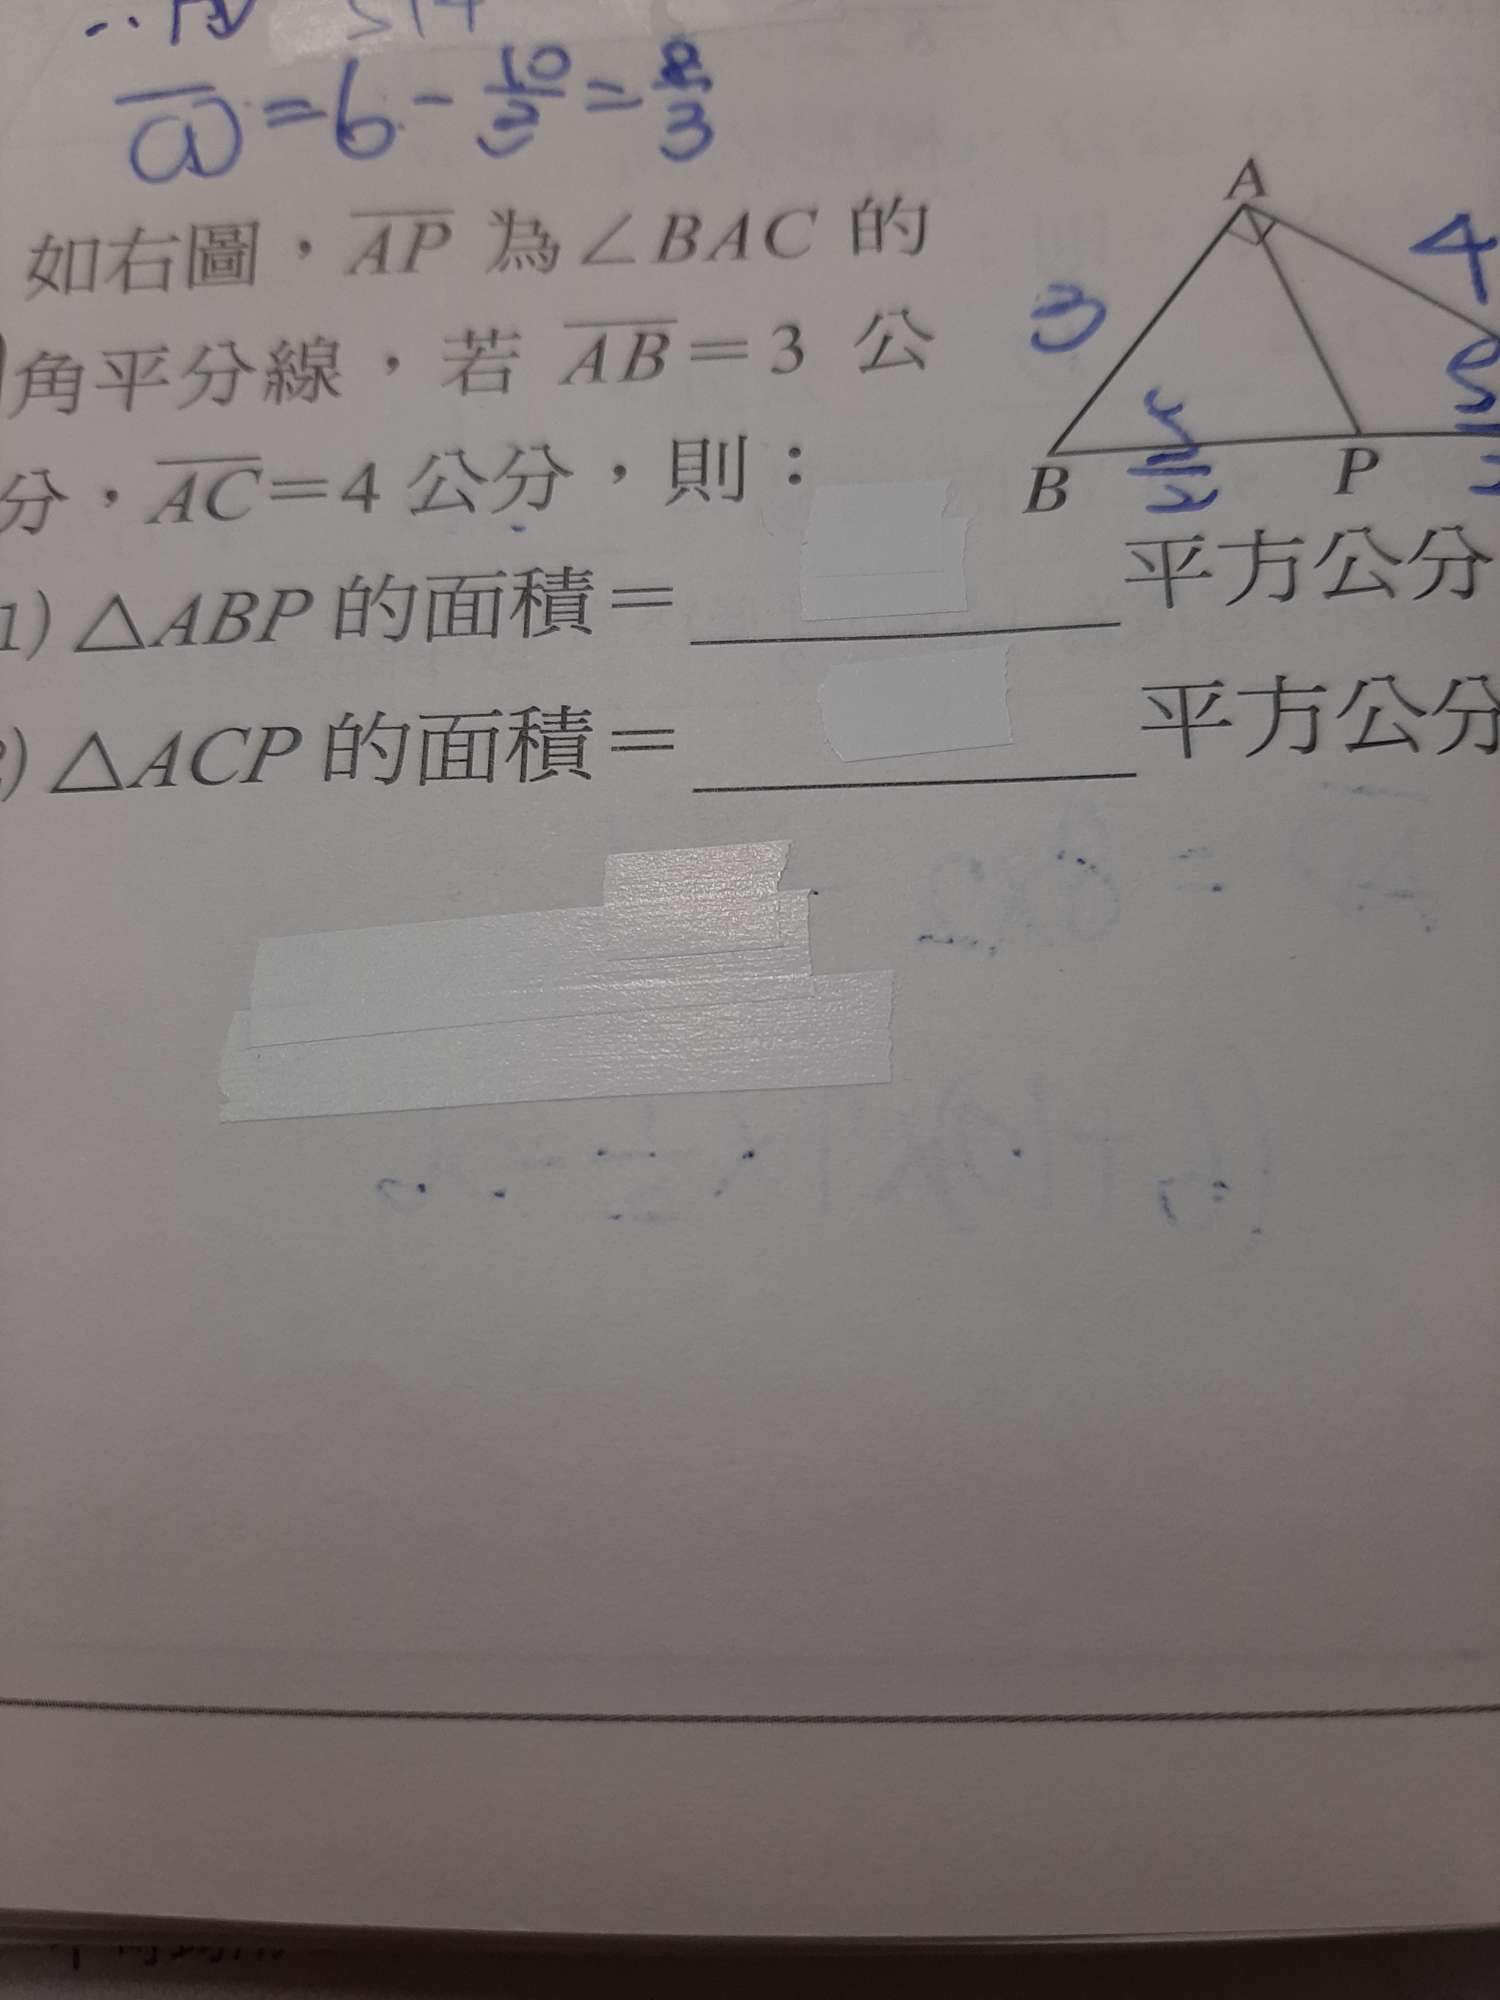 a = 6 - 10/3 = 8/3
如右圖，AP 為∠BAC 的
角平分線，若 AB=3 公
分，AC=4 公分，則：
A
4
3
B
5/2
P
1) △ABP 的面積= 平方公分
2) △ACP 的面積= 平方公分